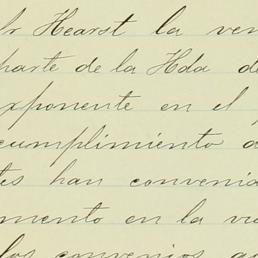 Sr Hearst la ven
parte de la Hda de
exponente en el
cumplimiento d
tes han convenid
mento en la vi
los convenios